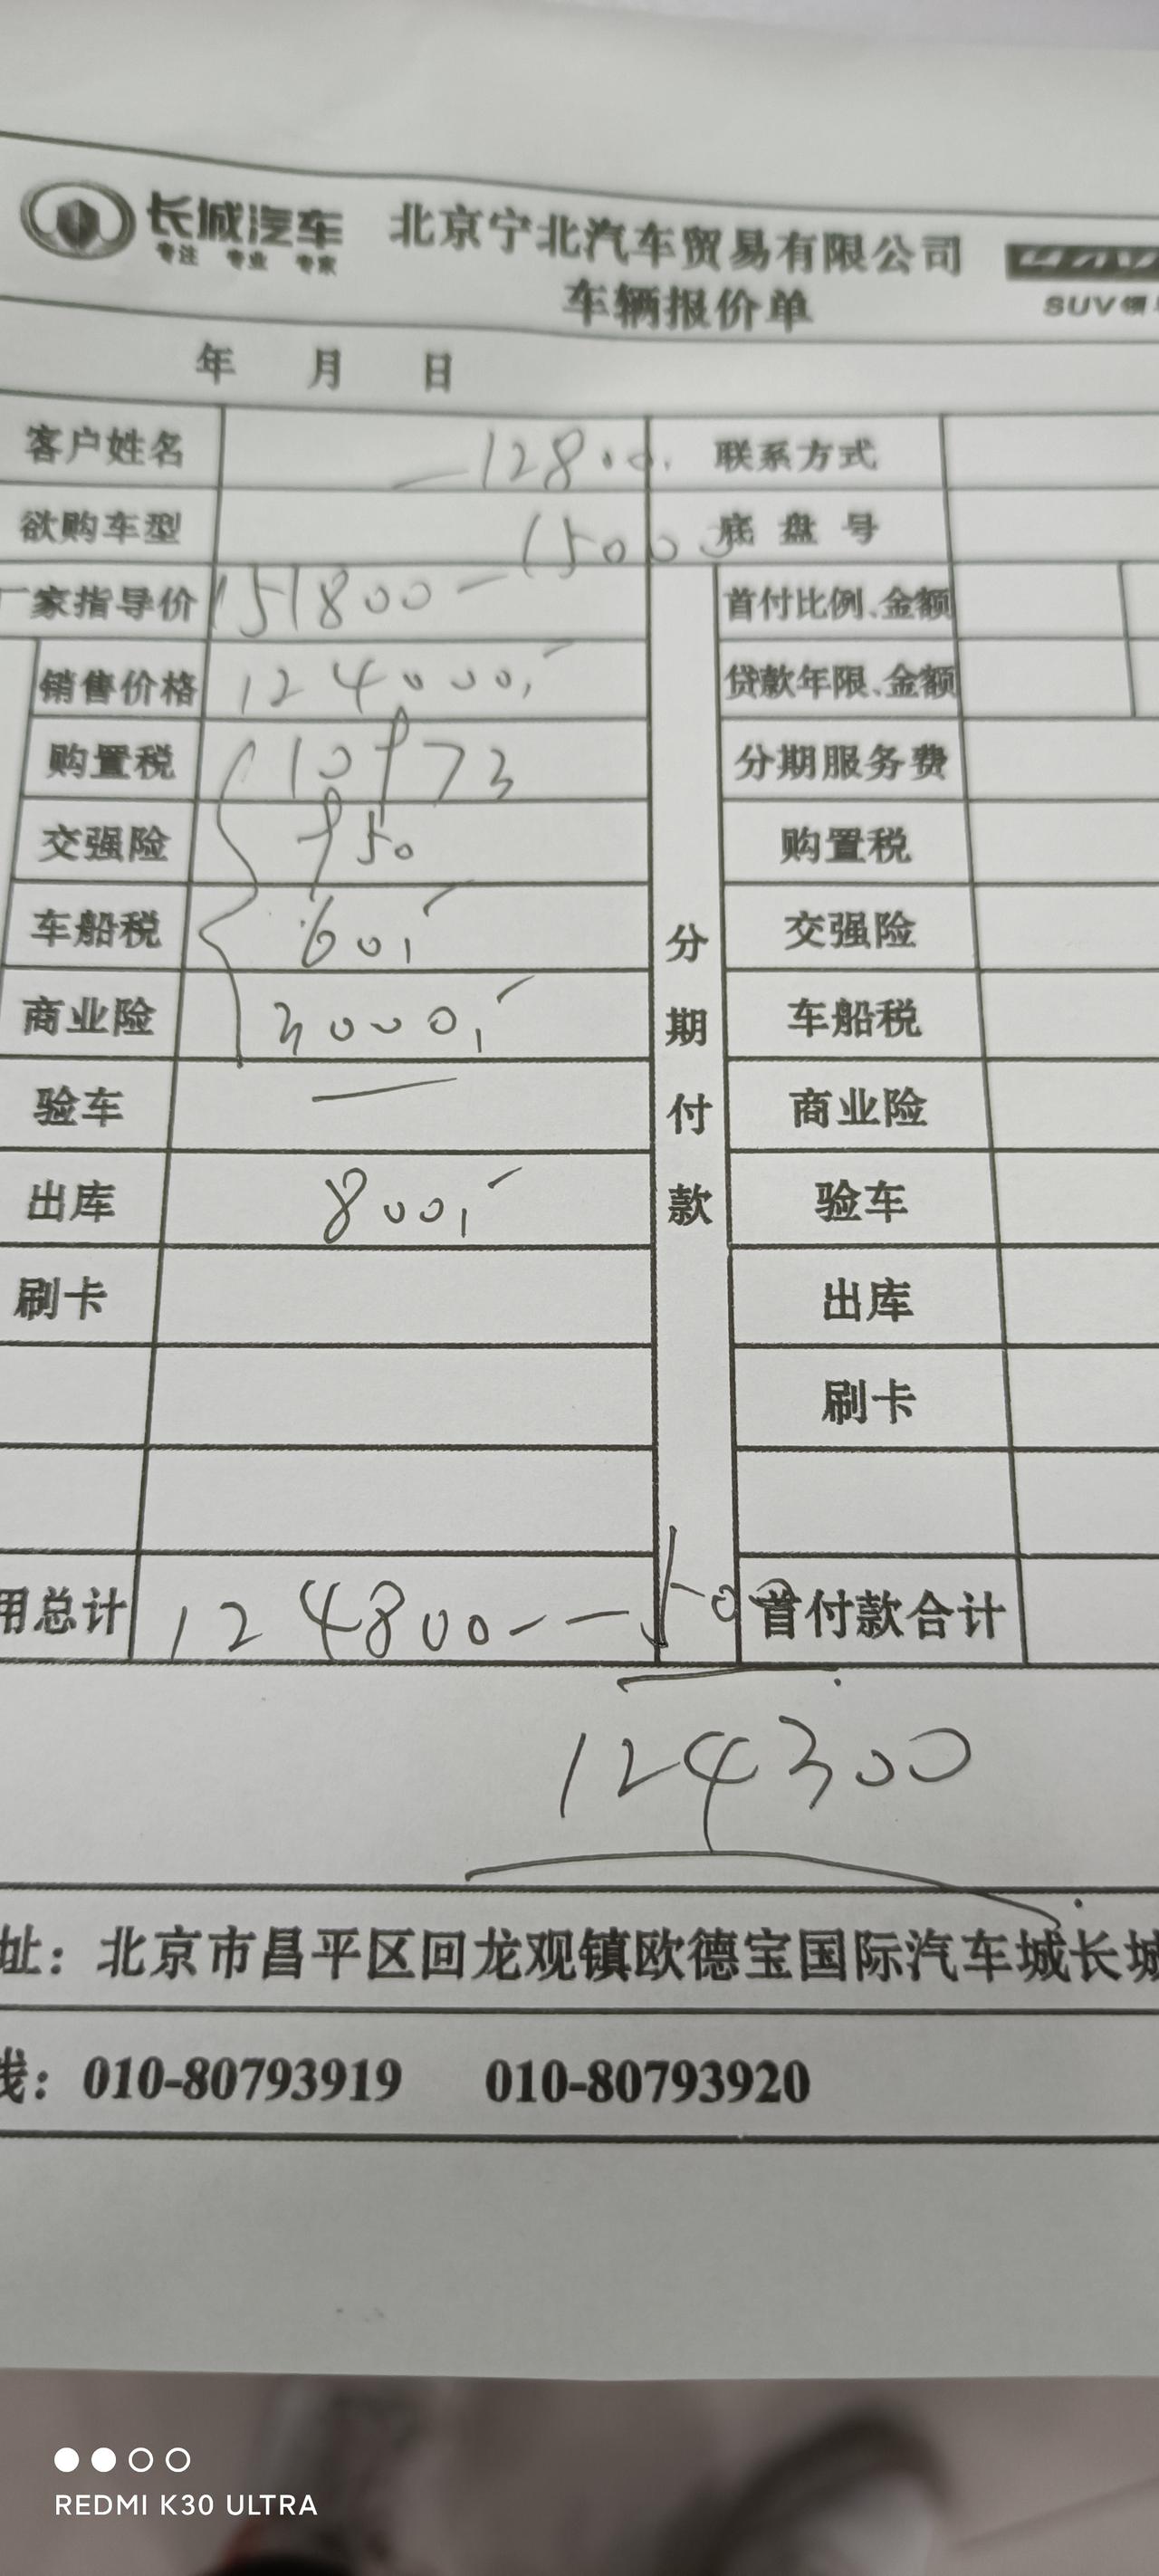 长城汽车 北京宁北汽车贸易有限公司
专注 专业 专家
车辆报价单
SUV领
年 月 日
客户姓名 12800. 联系方式
欲购车型 15000 底盘号
厂家指导价 151800 首付比例、金额
销售价格 124000 贷款年限、金额
购置税 10973 分期服务费
交强险 950 购置税
车船税 60 交强险
商业险 3000 车船税
验车 商业险
出库 800 验车
刷卡 出库
刷卡
分期付款
用总计 124800 - 500 首付款合计
124300
址：北京市昌平区回龙观镇欧德宝国际汽车城长城
线：010-80793919 010-80793920
REDMI K30 ULTRA